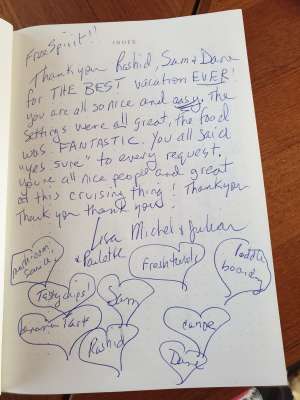 Free Spirit!!
INDEX
Thank you Rashid, Sam & Dana
for THE BEST vacation EVER!
you are all so nice and easy. The
settings were all great, the food
was FANTASTIC. You all said
"yes sure" to every request.
you're all nice people and great
at this cruising thing! Thank you
Thank you thank you!
Lisa Michel & Julian
& Paulette
Fresh towels
Paddle
boarding
Tasty chips!
Sam
banana
Rashid
canoe
Dana